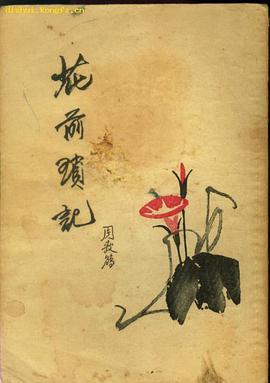 dishui.kongfz.cn
花前瑣記
周瘦鵑